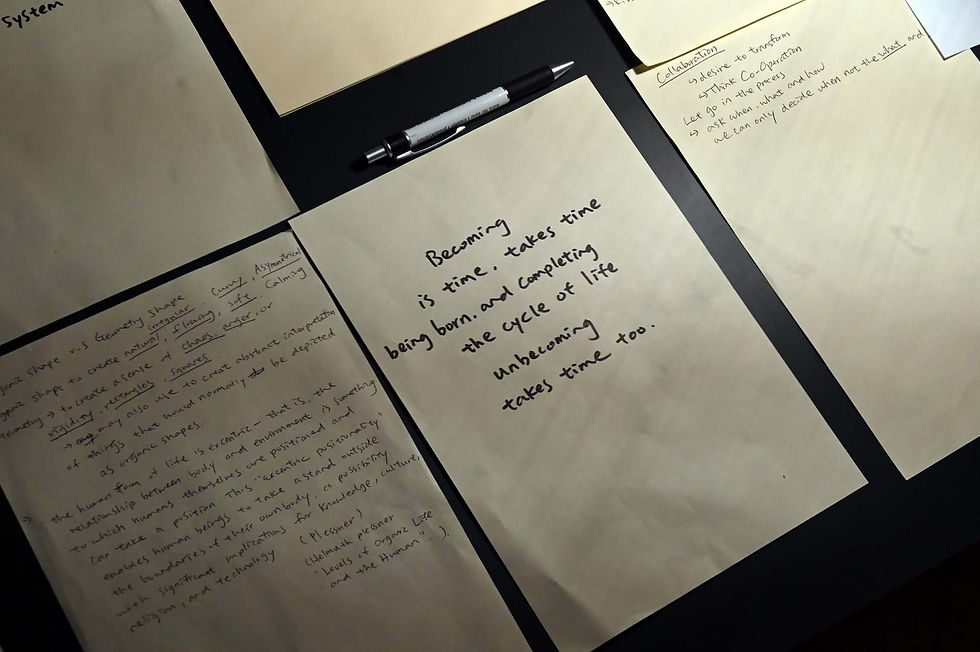 System
Becoming
is time. takes time
being born. and completing
the cycle of life
unbecoming
takes time too.
Collaboration
↳ desire to transform
↳ Think Co-Operation
Let go in the process
↳ ask when, what and how
we can only decide when not the what and
ganic shape v.s Geometry shape
ganic shape to create natural, irregular, flowing, curvy, soft, Asymmetrical, Calming
Geometry → to create a sense of chaos, anger, or
rigidity, rectangles, squares
→ may also use to create abstract interpretation
of things that would normally be depicted
as organic shapes.
→ the human form of life is excentric - that is, the
relationship between body and environment is something
to which humans themselves are positioned and
can take a position. This "excentric positionality"
enables human beings to take a stand outside
the boundaries of their own body, a possibility
with significant implications for knowledge, culture,
religion, and technology (Plessner)
(Helmuth plessner
- Levels of Organic Life
and the Human".)